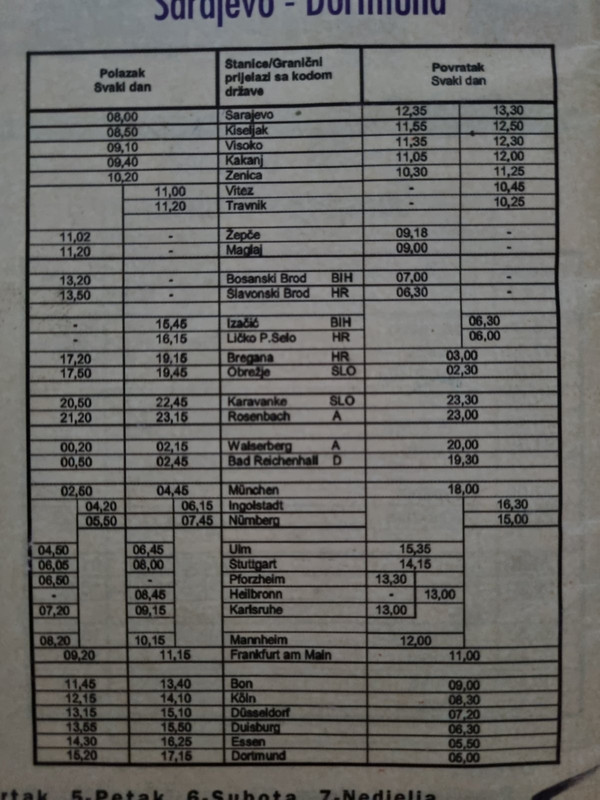 Sarajevo - Dortmund
Polazak Svaki dan | Stanice/Granični prijelazi sa kodom države | Povratak Svaki dan
08,00 Sarajevo 12,35 13,30
08,50 Kiseljak 11,55 12,50
09,10 Visoko 11,35 12,30
09,40 Kakanj 11,05 12,00
10,20 Zenica 10,30 11,25
11,00 Vitez - 10,45
11,20 Travnik - 10,25
11,02 - Žepče 09,18 -
11,20 - Maglaj 09,00 -
13,20 - Bosanski Brod BIH 07,00 -
13,50 - Slavonski Brod HR 06,30 -
- 15,45 Izačić BIH 06,30
- 16,15 Ličko P.Selo HR 06,00
17,20 19,15 Bregana HR 03,00
17,50 19,45 Obrežje SLO 02,30
20,50 22,45 Karavanke SLO 23,30
21,20 23,15 Rosenbach A 23,00
00,20 02,15 Walserberg A 20,00
00,50 02,45 Bad Reichenhall D 19,30
02,50 04,45 München 18,00
04,20 06,15 Ingolstadt 16,30
05,50 07,45 Nürnberg 15,00
04,50 06,45 Ulm 15,35
06,05 08,00 Stuttgart 14,15
06,50 - Pforzheim 13,30
- 08,45 Heilbronn - 13,00
07,20 09,15 Karlsruhe 13,00
08,20 10,15 Mannheim 12,00
09,20 11,15 Frankfurt am Main 11,00
11,45 13,40 Bon 09,00
12,15 14,10 Köln 08,30
13,15 15,10 Düsseldorf 07,20
13,55 15,50 Duisburg 06,30
14,30 16,25 Essen 05,50
15,20 17,15 Dortmund 05,00
rtak, 5-Petak, 6-Subota, 7-Nedjelja